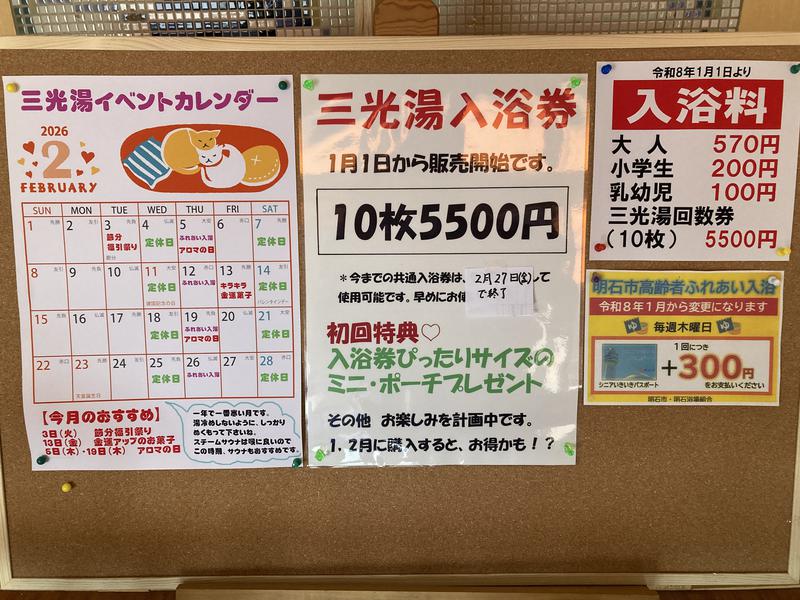 三光湯イベントカレンダー
2026
2
FEBRUARY
SUN MON TUE WED THU FRI SAT
1 先勝 2 友引 3 先負 4 仏滅 5 大安 6 赤口 7 先勝
節分 福引祭り 定休日 ふれあい入浴 アロマの日 定休日
節分
8 友引 9 先負 10 仏滅 11 大安 12 赤口 13 先勝 14 友引
定休日 ふれあい入浴 キラキラ 金運菓子 定休日
建国記念の日 バレンタインデー
15 先負 16 仏滅 17 先勝 18 友引 19 先負 20 仏滅 21 大安
定休日 ふれあい入浴 アロマの日 定休日
22 赤口 23 先勝 24 友引 25 先負 26 仏滅 27 大安 28 赤口
定休日 ふれあい入浴 定休日
天皇誕生日
【今月のおすすめ】
3日(火) 節分福引祭り
13日(金) 金運アップのお菓子
5日(木)・19日(木) アロマの日
一年で一番寒い月です。
湯冷めしないように、しっかり
ぬくもって下さいね。
スチームサウナは喉に良いので
この時期、サウナもおすすめです。
三光湯入浴券
1月1日から販売開始です。
10枚5500円
*今までの共通入浴券は、
2月27日(金)
で終了
して
使用可能です。早めにお使
初回特典♡
入浴券ぴったりサイズの
ミニ・ポーチプレゼント
その他 お楽しみを計画中です。
1、2月に購入すると、お得かも!?
令和8年1月1日より
入浴料
大人 570円
小学生 200円
乳幼児 100円
三光湯回数券
(10枚) 5500円
明石市高齢者ふれあい入浴
令和8年1月から変更になります
ゆ 毎週木曜日 ゆ
1回につき
+300円
シニアいきいきパスポート
をお支払いください
明石市・明石浴場組合